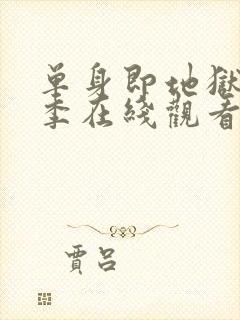 單身即地獄
季在綫觀看
賈呂